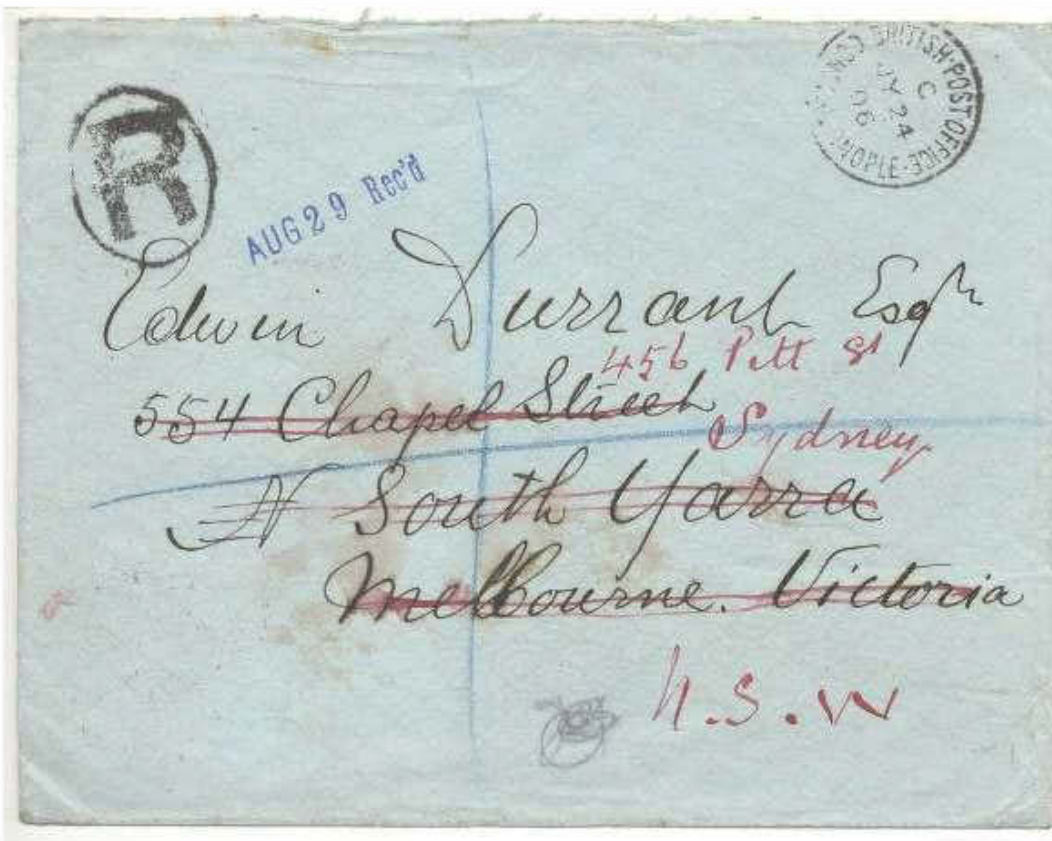 BRITISH·POST OFFICE
C
JY 24
06
NOPLE·
R
AUG 29 Rec'd
Edwin Durrant Esqr
456 Pitt St
554 Chapel Street
Sydney
South Yarra
Melbourne. Victoria
N.S.W